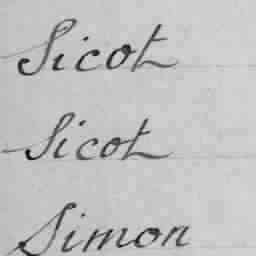 Sicot
Sicot
Simon